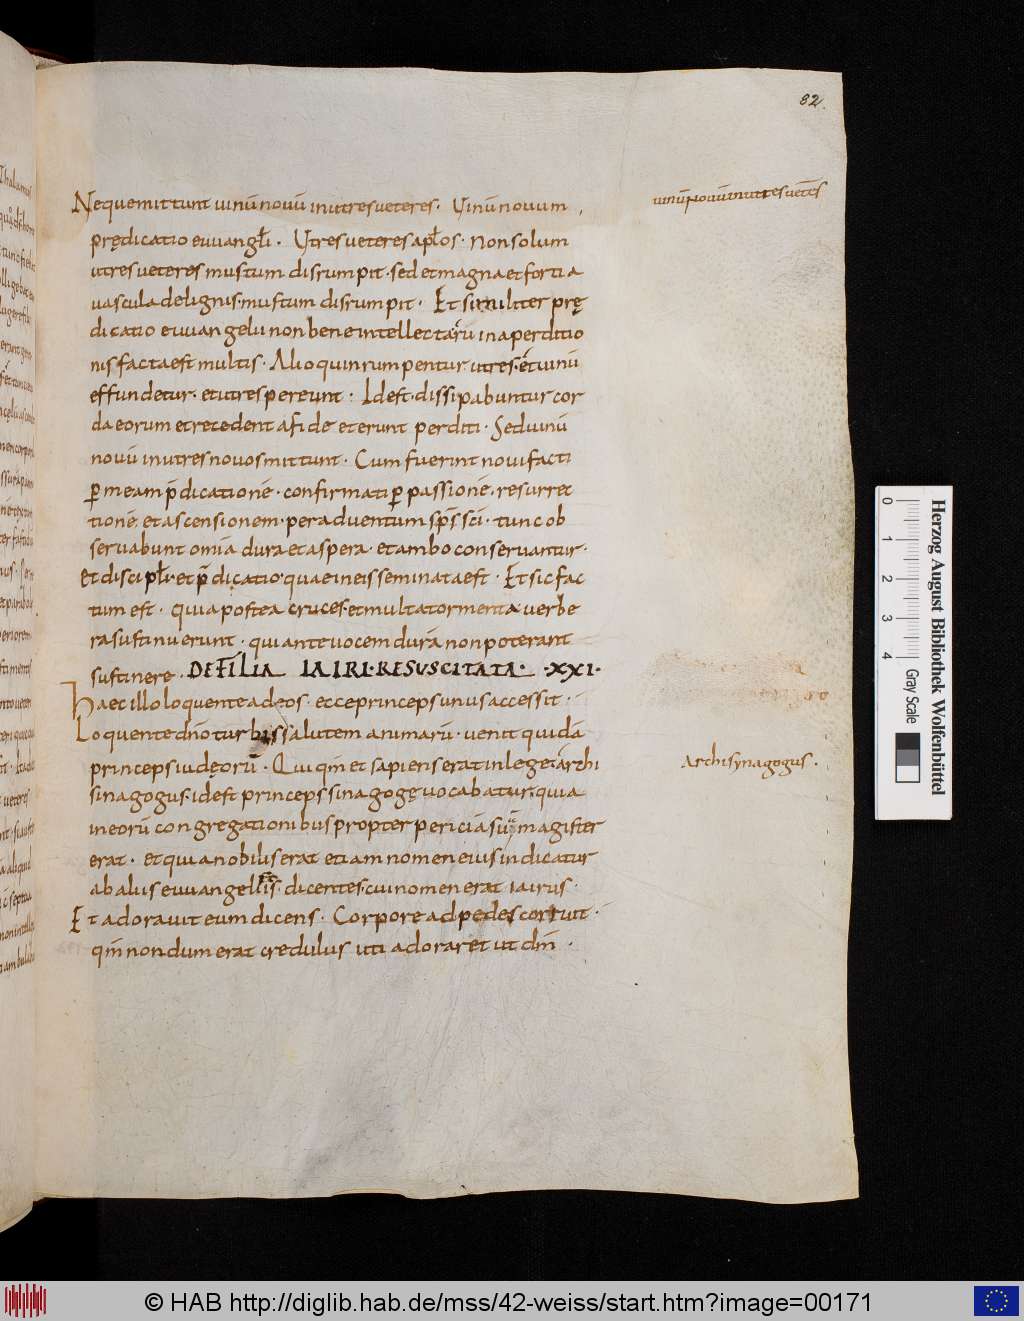 82
uinū nouū in utres uetēs
Neque mittunt uinū nouū in utres ueteres. Uinū nouum
prędicatio euuangl̄i. Utres ueteres apl̄os. non solum
utres ueteres mustum disrumpit. sed et magna et fortia
uascula de lignis. mustum disrumpit. Et similiter prę
dicatio euuangelii non bene intellecta in a perditio
nis facta est multis. Alioquin rumpentur utres. et uinū
effundetur. et utres pereunt: Id est. dissipabuntur cor
da eorum et recedent a fide et erunt perditi. Sed uinū
nouū in utres nouos mittunt. Cum fuerint noui facti
ꝑ meam p̄dicationē. confirmati ꝑ passionē. resurrec
tionē. et ascensionem. per aduentum sp̄s sc̄i. tunc ob
seruabunt omīa dura et aspera. et ambo conseruantur.
et discipl̄i. et p̄dicatio. quae in eis seminata est. Et sic fac
tum est. quia postea cruces. et multa tormenta uerbe
ra sustinuerunt. qui ante uocem durā non poterant
sustinere. DE FILIA IAIRI. RESUSCITATA. .XXI.
Haec illo loquente ad eos. ecce princeps unus accessit.
Loquente dn̄o turbis salutem animarū. uenit quidā
princeps iudęorū. Qui qm̄ et sapiens erat in lege. archi
Archisynagogus.
sinagogus. id est princeps sinagogę uocabatur. quia
in eorū congregationibus propter periciā suā magister
erat. et quia nobilis erat etiam nomen eius indicatur
ab aliis euuangelīis. dicentes. cui nomen erat iairus.
Et adorauit eum dicens. Corpore ad pedes corruit.
qm̄ nondum erat credulus uti adoraret ut dm̄.
0 1 2 3 4
Gray Scale
Herzog August Bibliothek Wolfenbüttel
© HAB http://diglib.hab.de/mss/42-weiss/start.htm?image=00171